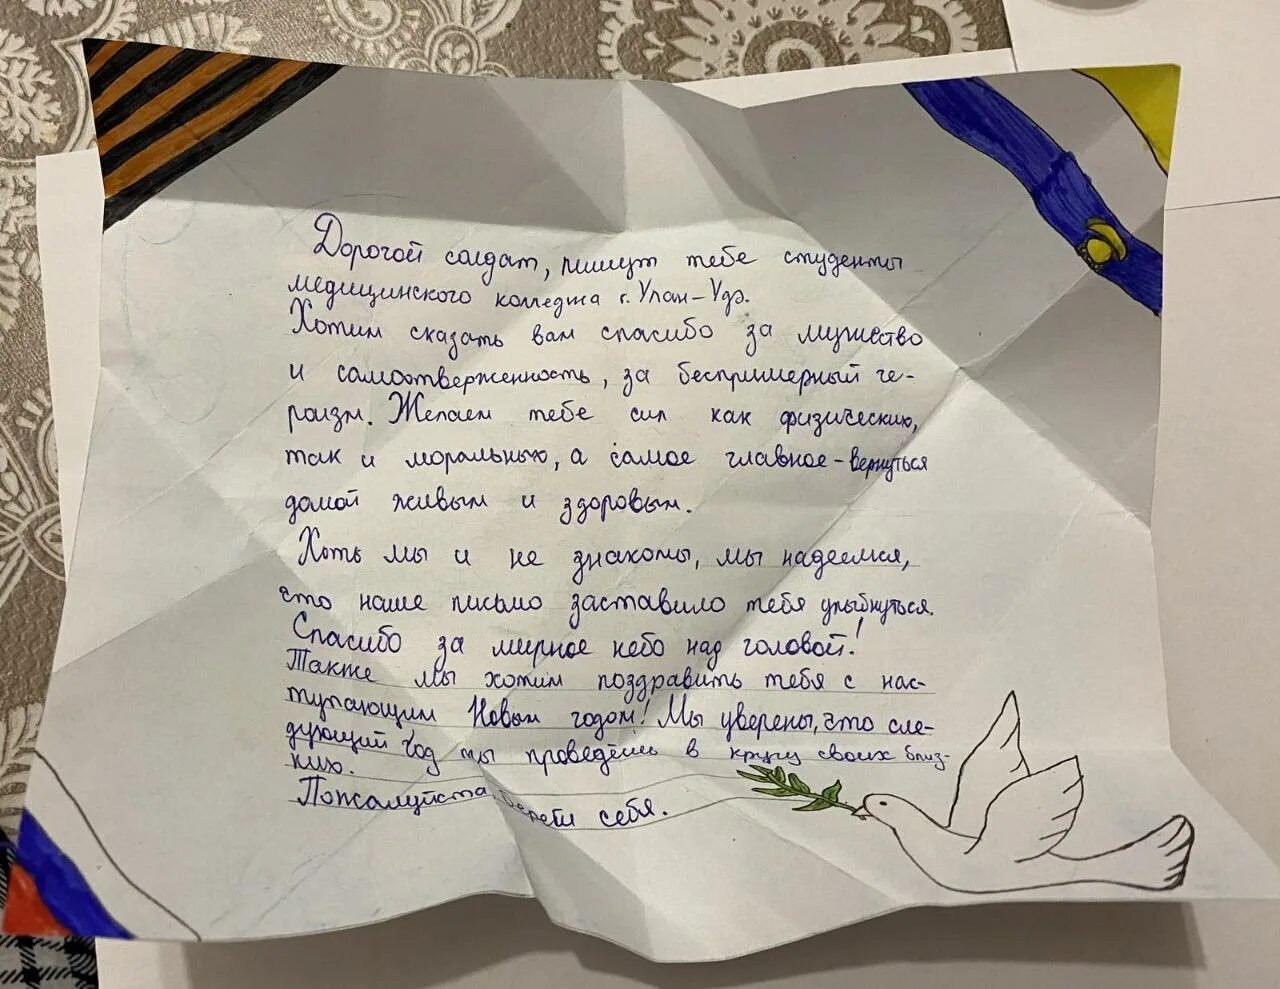 Дорогой солдат, пишут тебе студенты
медицинского колледжа г. Улан-Удэ.
Хотим сказать вам спасибо за мужество
и самоотверженность, за беспримерный ге-
роизм. Желаем тебе сил как физических,
так и моральных, а самое главное - вернуться
домой живым и здоровым.
Хоть мы и не знакомы, мы надеемся,
что наше письмо заставило тебя улыбнуться.
Спасибо за мирное небо над головой!
Также мы хотим поздравить тебя с нас-
тупающим Новым годом! Мы уверены, что сле-
дующий год ты проведёшь в кругу своих близ-
ких.
Пожалуйста, береги себя.